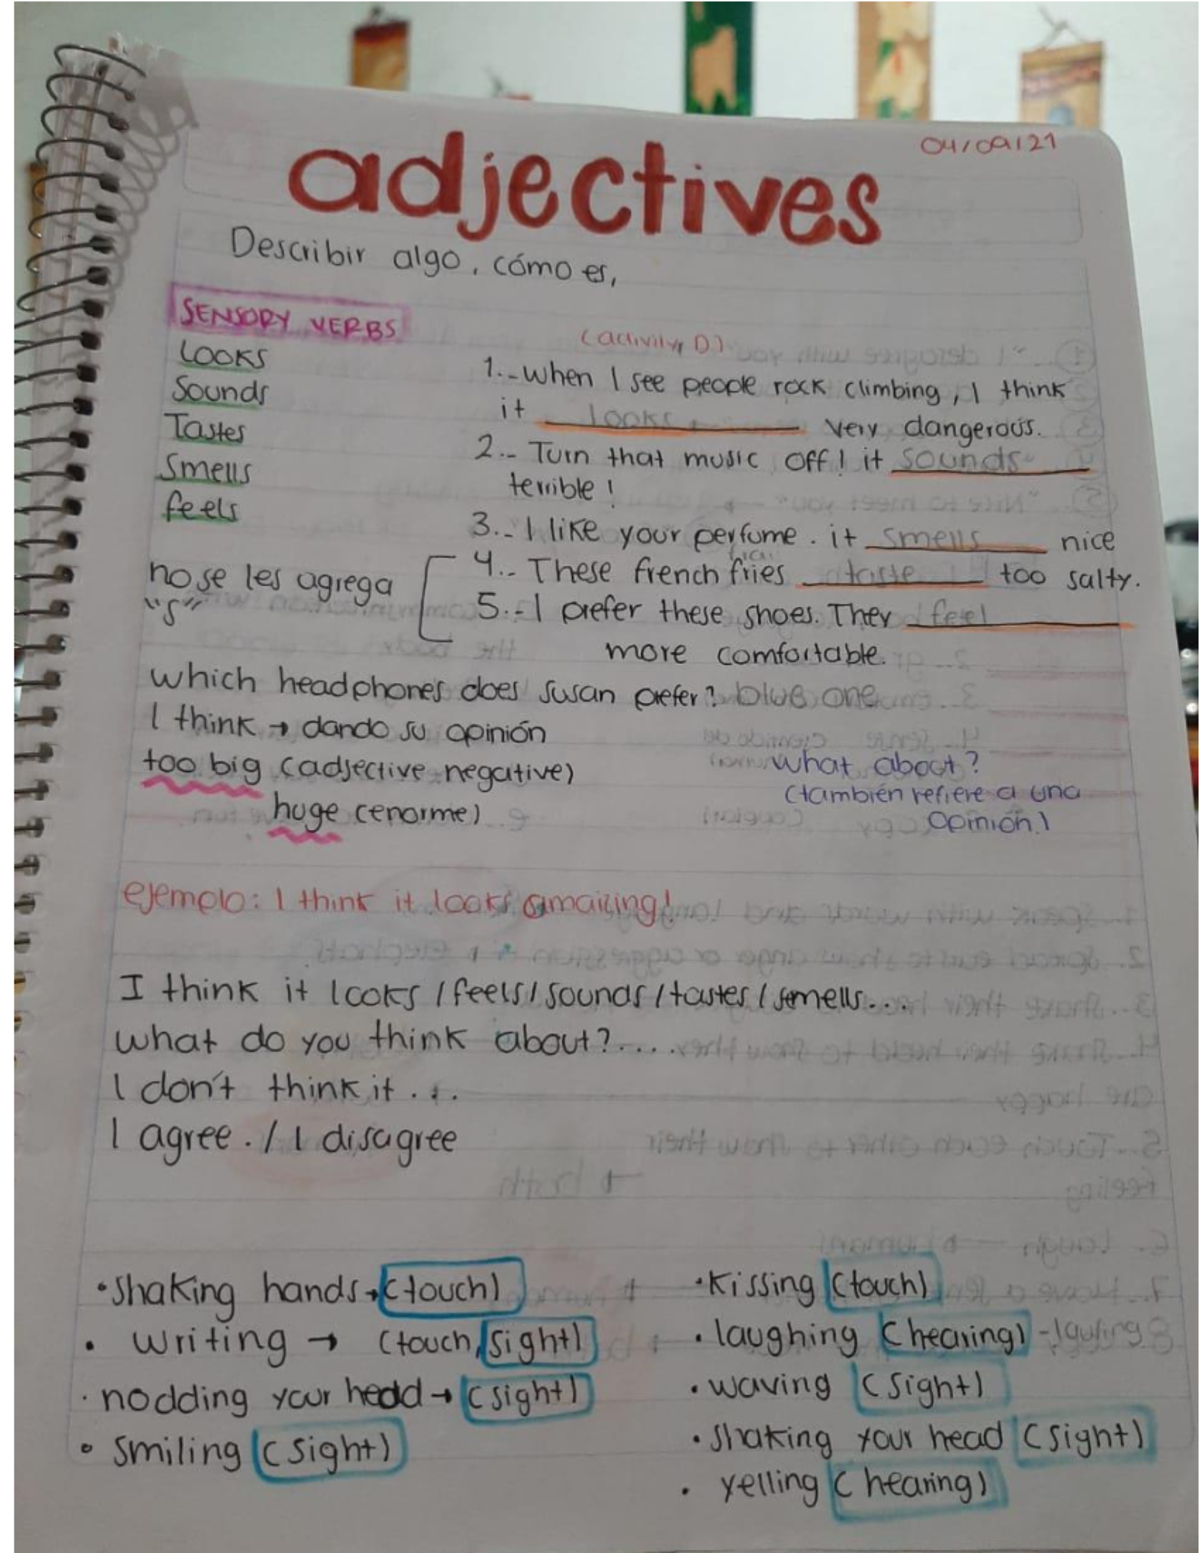 04/09/21
adjectives
Describir algo, cómo es,
SENSORY VERBS
Looks
Sounds
Tastes
Smells
feels
no se les agrega
"s"
(activity D)
1.- When I see people rock climbing, I think
it looks very dangerous.
2.- Turn that music off! it sounds
terrible!
3.- I like your perfume. it smells nice
4.- These french fries taste too salty.
5.- I prefer these shoes. They feel
more comfortable.
which headphones does susan prefer? blue one
I think → dando su opinión
too big (adjective negative)
huge (enorme)
what about?
(también refiere a una
opinión)
ejemplo: I think it looks amaicing!
I think it looks / feels / sounds / tastes / smells...
what do you think about?....
I don't think it ...
I agree. / I disagree
• shaking hands → (touch)
• writing → (touch, sight)
• nodding your hedd → (sight)
• smiling (sight)
• kissing (touch)
• laughing (hearing)
• waving (sight)
• shaking your head (sight)
• yelling (hearing)